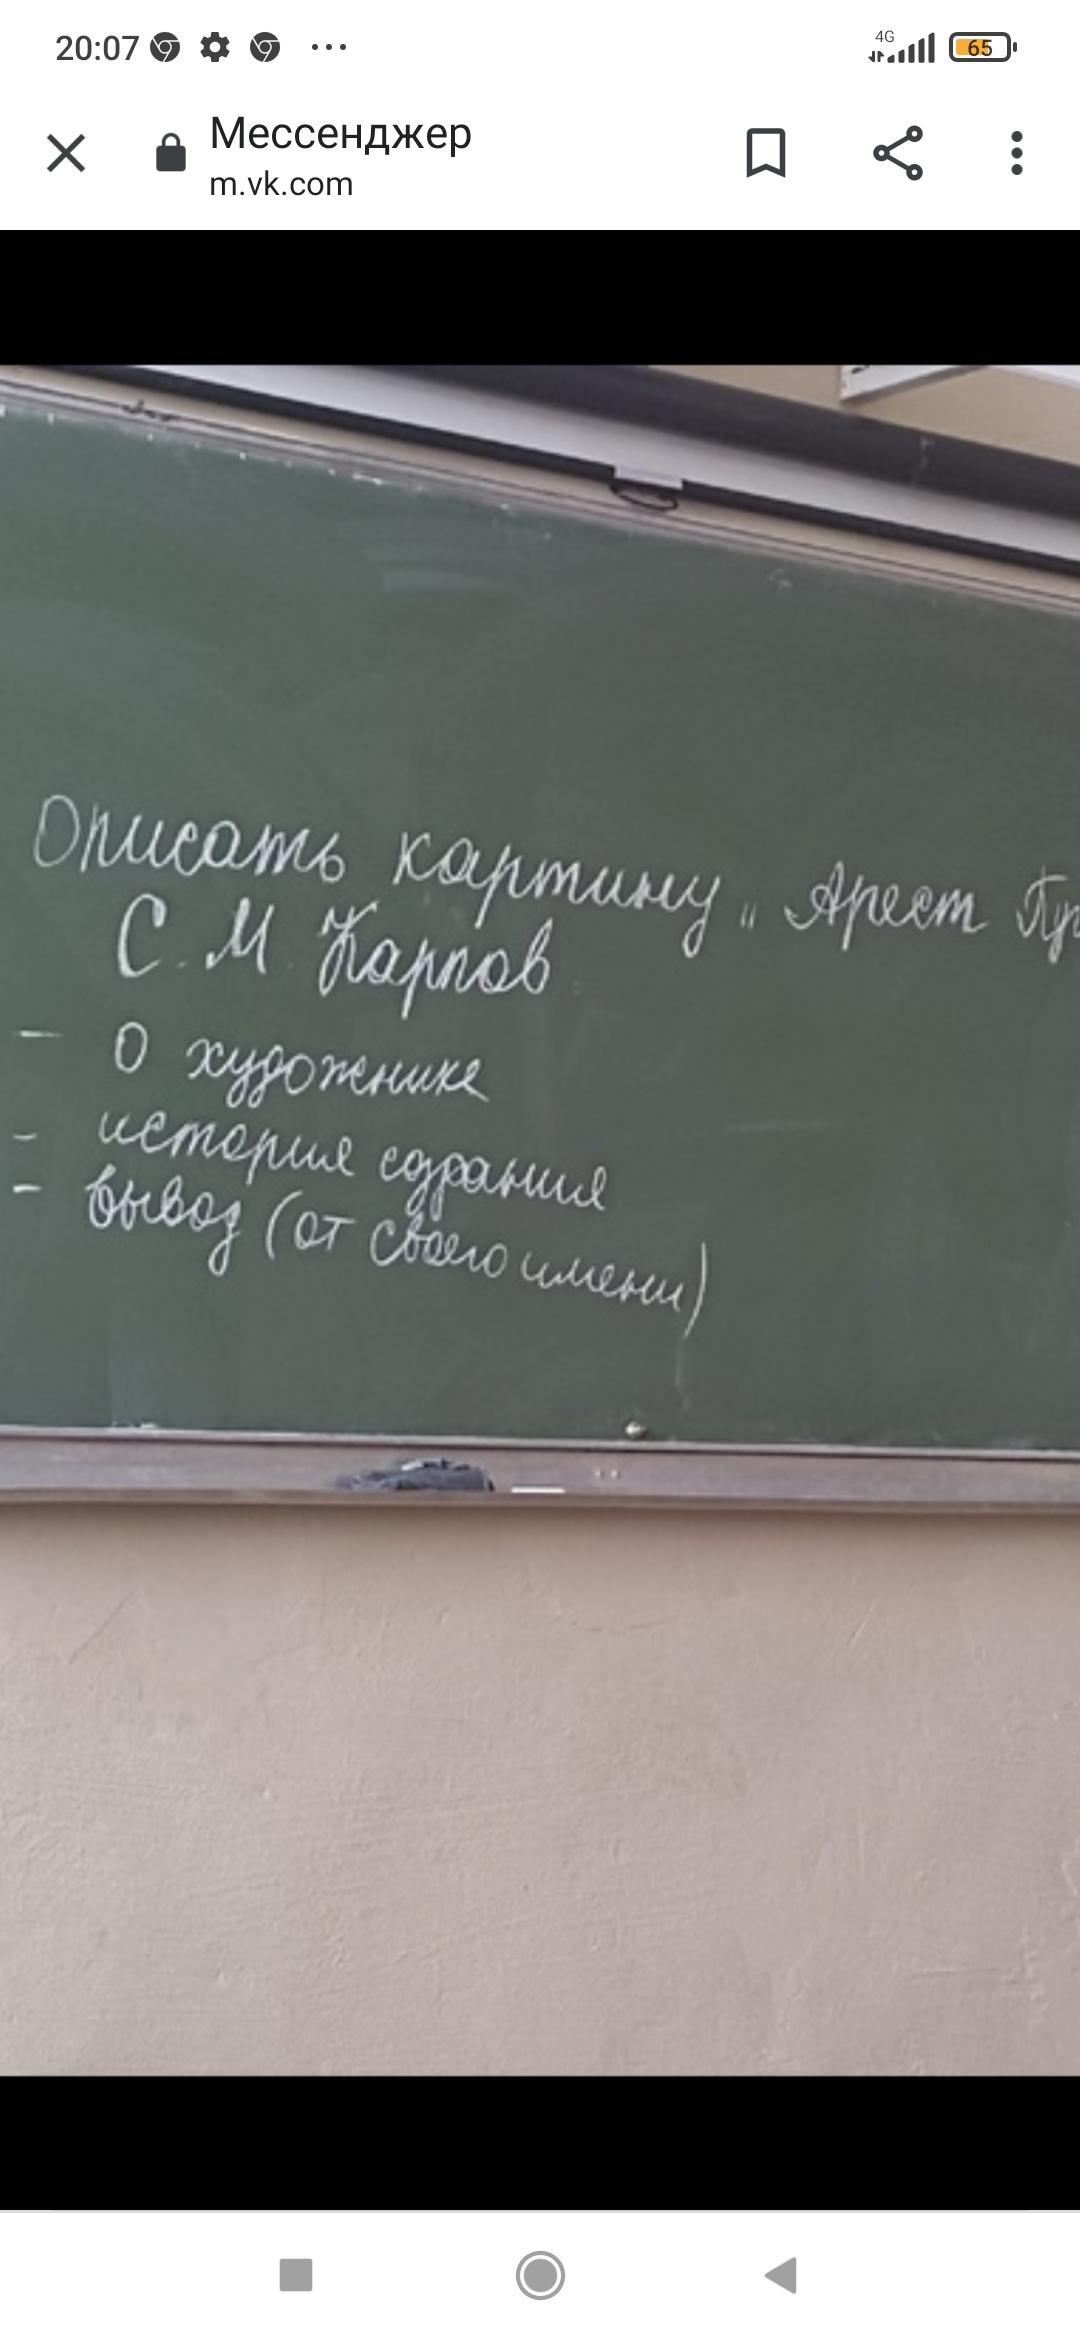 20:07
4G
65
Мессенджер
m.vk.com
Описать картину „ Арест
С. М. Карпов
- О художнике
- история создания
- вывод (от своего имени)